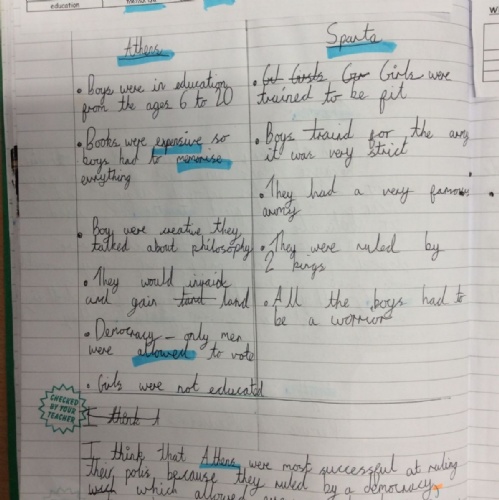 education
Athens
• Boys were in education
from the ages 6 to 20
• Books were expensive so
boys had to memorise
everything
• Boy were creative they
talked about philosophy
• They would invaide
and gain land land
• Democracy - only men
were allowed to vote
• Girls were not educated
Sparta
• Girls were
trained to be fit
• Boys traind for the army
it was very strict
• They had a very famous
army
• They were ruled by
2 kings
• All the boys had to
be a worrior
CHECKED
BY YOUR
TEACHER
I think A
I think that Athens were most successful at ruling
their polis because they ruled by a democracy
which allowed